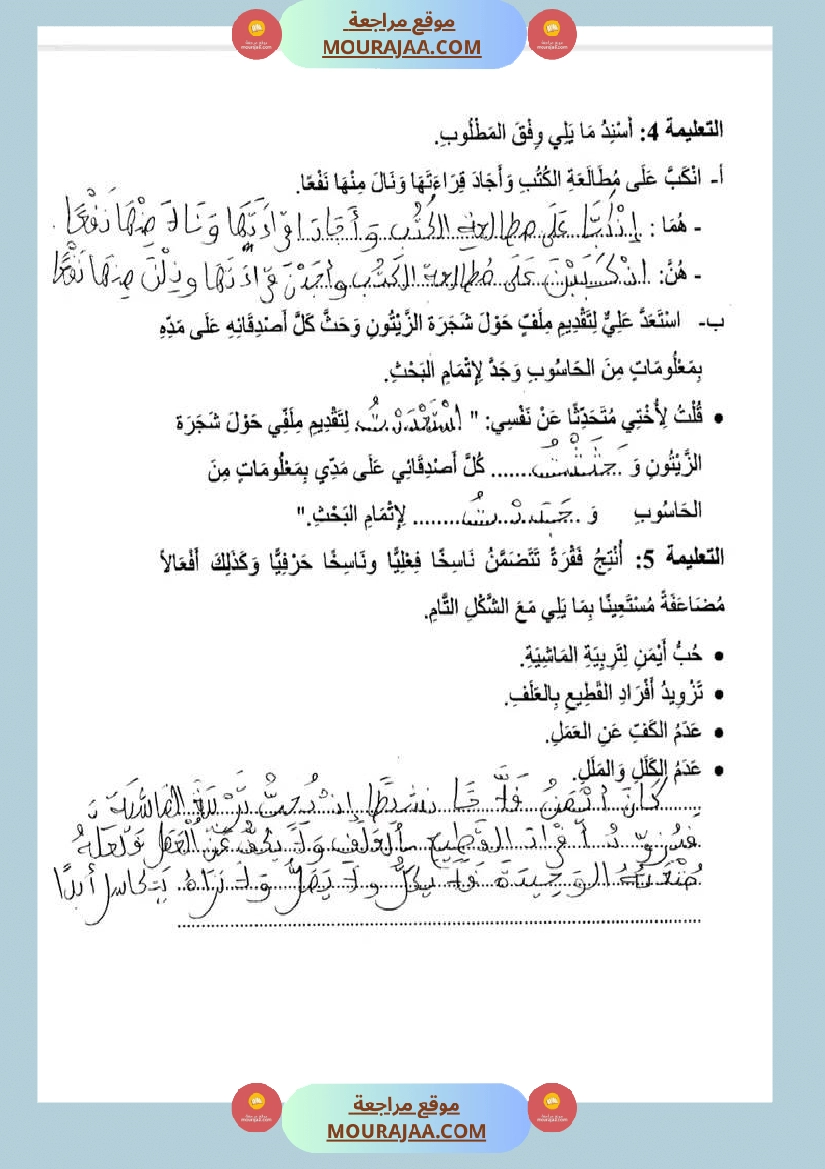 موقع مراجعة
MOURAJAA.COM
التعليمة 4: أُسْنِدُ مَا يَلِي وِفْقَ المَطْلُوبِ.
أ- انْكَبَّ عَلَى مُطَالَعَةِ الكُتُبِ وَأَجَادَ قِرَاءَتَهَا وَنَالَ مِنْهَا نَفْعًا.
- هُمَا : إِنْكَبَّا عَلَى مطالعة الكُتُب وَأَجَادَا قِرَاءَتَهَا وَنَالَا مِنْهَا نَفْعًا
- هُنَّ: انْكَبَبْنَ عَلَى مُطالعة الكُتُب وأَجَدْنَ قِرَاءَتَهَا ونِلْنَ مِنهَا نَفْعًا
ب- اسْتَعَدَّ عَلِيٌّ لِتَقْدِيمِ مِلَفٍّ حَوْلَ شَجَرَةِ الزَّيْتُونِ وَحَثَّ كُلَّ أَصْدِقَائِهِ عَلَى مَدِّهِ
بِمَعْلُومَاتٍ مِنَ الحَاسُوبِ وَجَدَّ لِإِتْمَامِ البَحْثِ.
• قُلْتُ لِأُخْتِي مُتَحَدِّثًا عَنْ نَفْسِي: " اسْتَعْدَدْتُ لِتَقْدِيمِ مِلَفِّي حَوْلَ شَجَرَةِ
الزَّيْتُونِ وَ حَثَثْتُ كُلَّ أَصْدِقَائِي عَلَى مَدِّي بِمَعْلُومَاتٍ مِنَ
الحَاسُوبِ وَ جَدَدْتُ لِإِتْمَامِ البَحْثِ."
التعليمة 5: أُنْتِجُ فَقْرَةً تَتَضَمَّنُ نَاسِخًا فِعْلِيًّا ونَاسِخًا حَرْفِيًّا وَكَذَلِكَ أَفْعَالاً
مُضَاعَفَةً مُسْتَعِينًا بِمَا يَلِي مَعَ الشَّكْلِ التَّامِ.
• حُبُّ أَيْمَنِ لِتَرْبِيَةِ المَاشِيَةِ.
• تَزْوِيدُ أَفْرَادِ القَطِيعِ بِالعَلَفِ.
• عَدَمُ الكَفِّ عَنِ العَمَلِ.
• عَدَمُ الكَلَلِ وَالمَلَلِ.
كَانَ أَيْمَنُ فَلَّاحًا نَشِيطًا إنَّهُ يُحِبُّ تَرْبِيَةَ المَاشِيَةَ
أَفْرَادَ القَطِيعِ بِالعَلَفِ وَلَا يَكُفُّ عَنْ الْعَمَلِ
الوَحِيدَةَ فَلَا يَكِلُّ ولَا يَمَلُّ وَلَا نَرَاهُ يَتَكَاسَل أَبَدًا
موقع مراجعة
MOURAJAA.COM